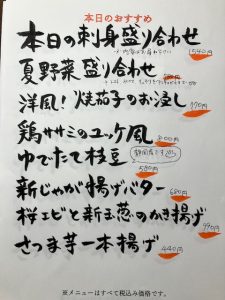 本日のおすすめ
本日の刺身盛り合わせ
1540円
夏野菜盛り合わせ
洋風!焼茄子のお浸し
770円
鶏ササミのユッケ風
800円
ゆでたて枝豆
静岡産です
580円
新じゃが揚げバター
680円
桜エビと新玉葱のかき揚げ
990円
さつま芋一本揚げ
440円
※メニューはすべて税込み価格です。